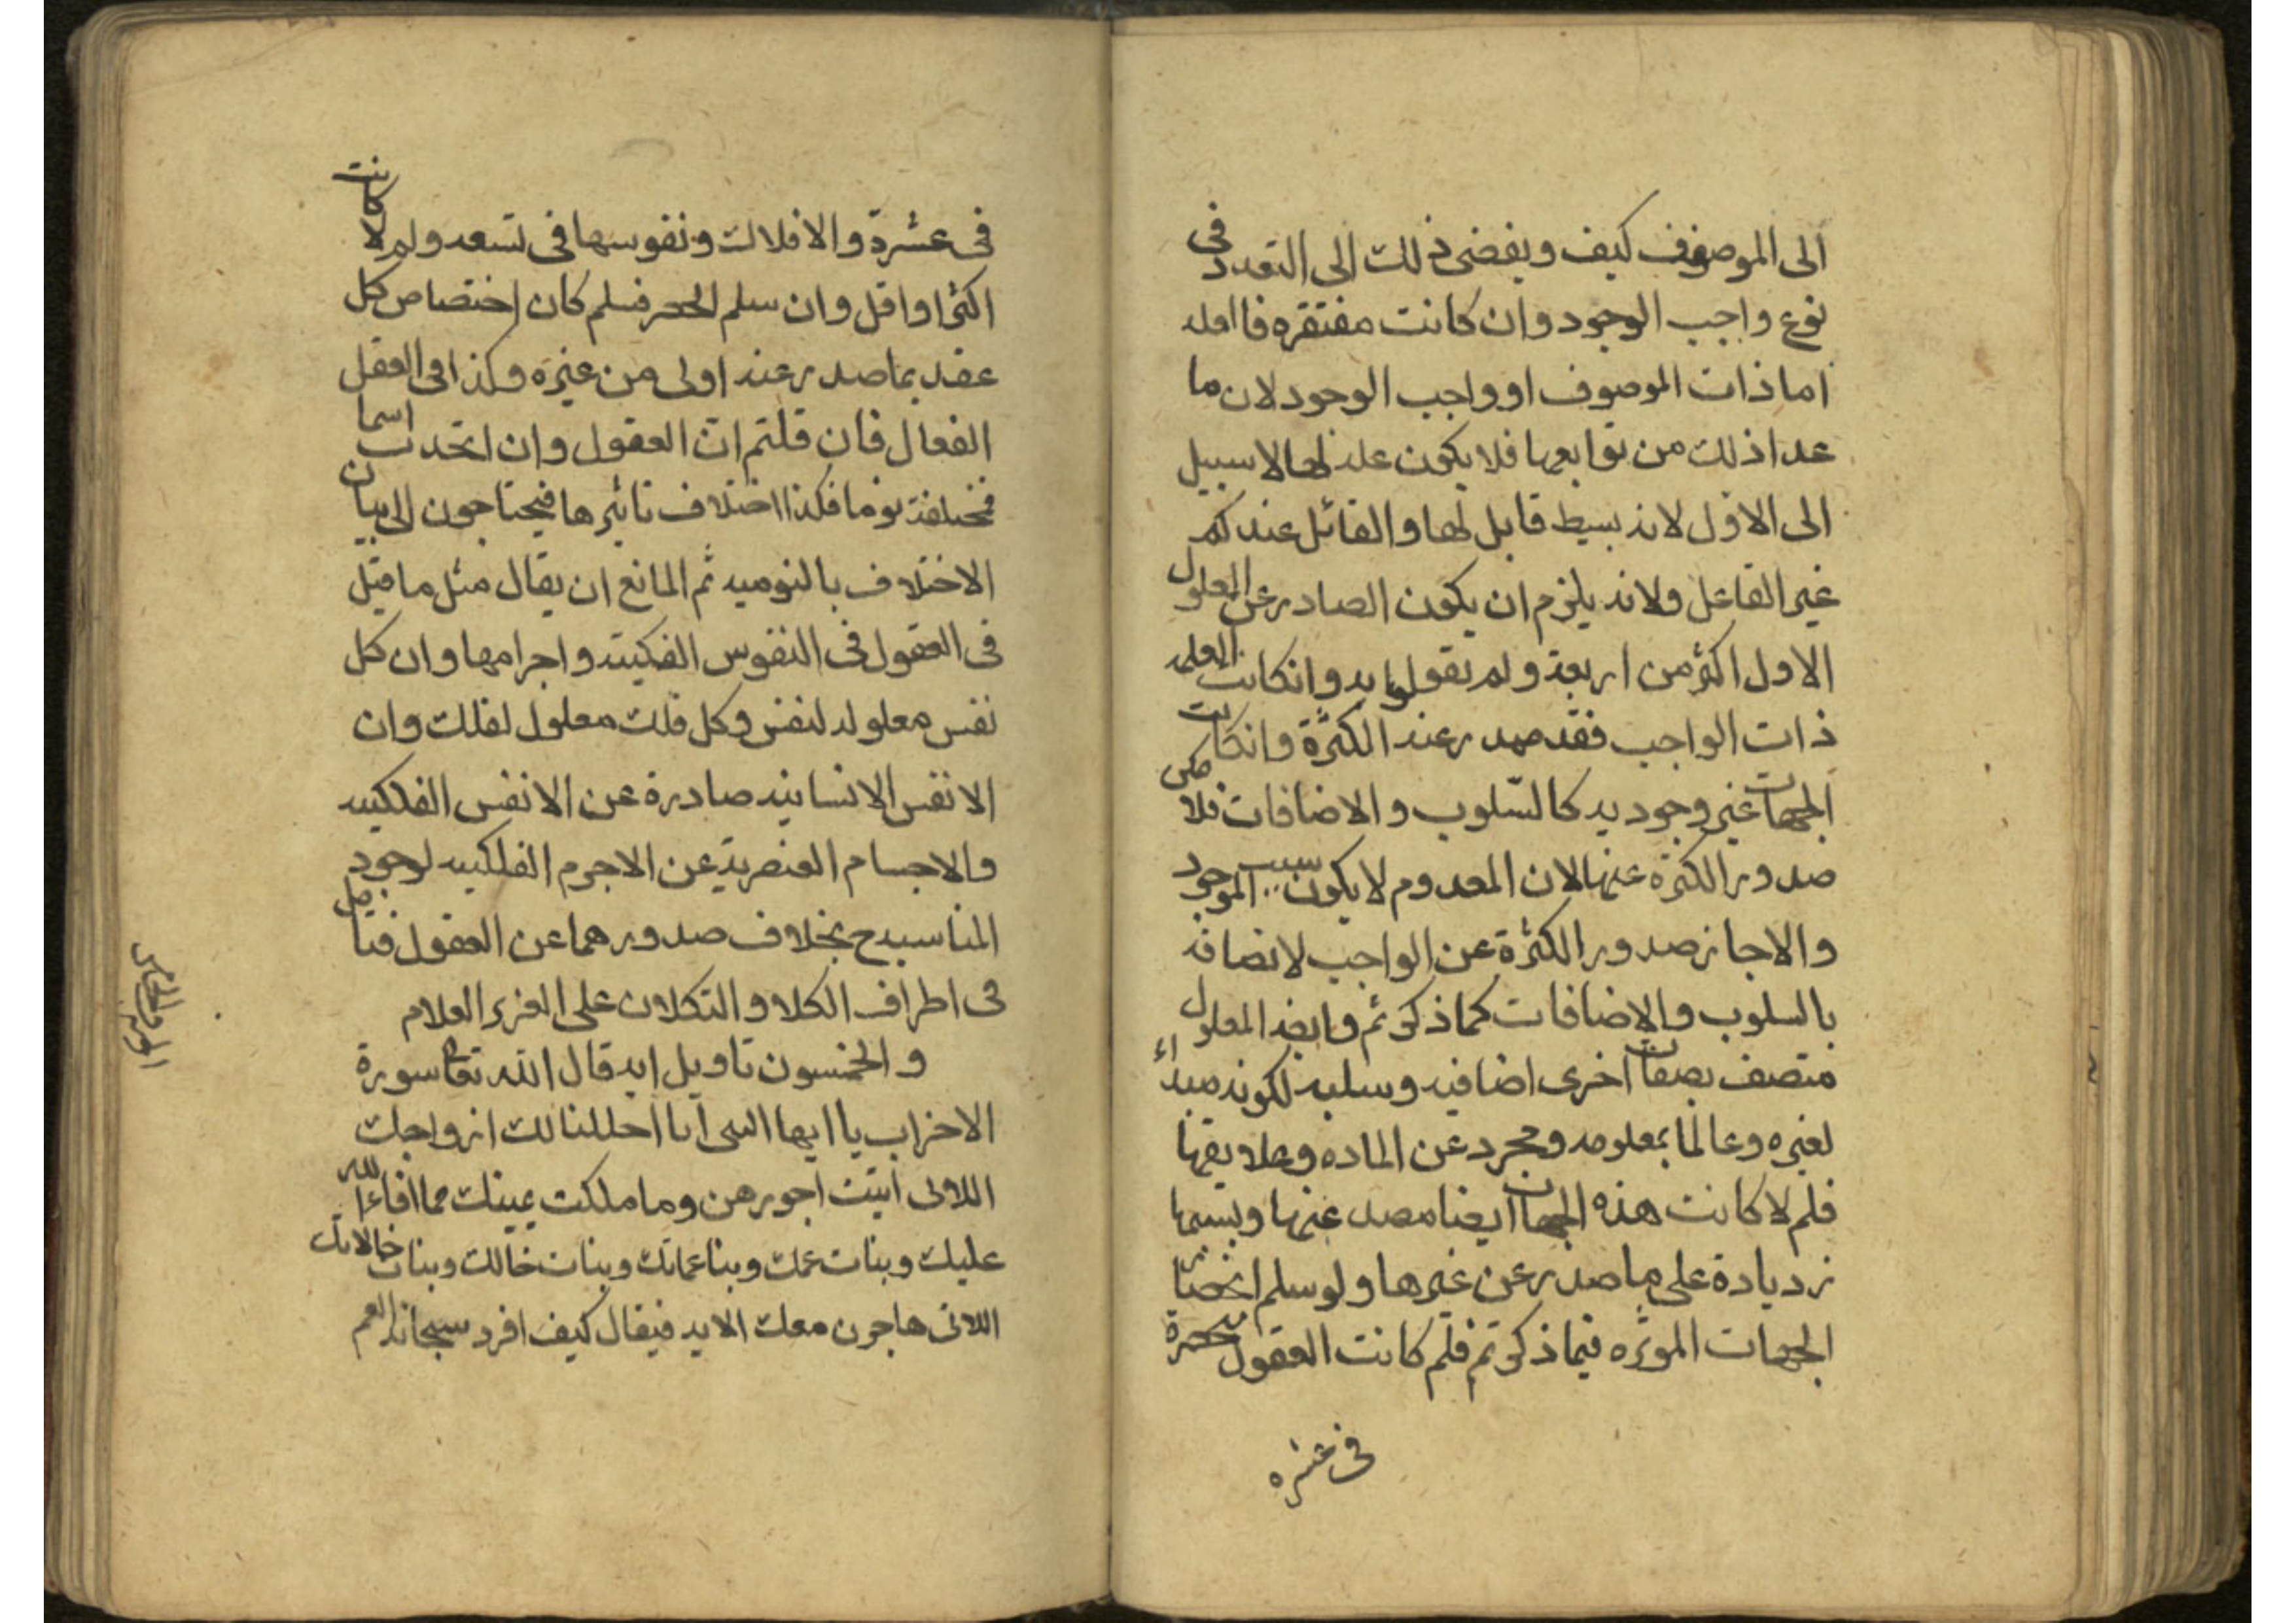 الى الموصوف كيف ويفضى ذلك الى التعدد فى
نوع واجب الوجود وان كانت مفتقره فاما له
اما ذات الموصوف او واجب الوجود لان ما
عدا ذلك من توابعها فلا يكون عله لها لا سبيل
الى الاول لانه بسيط قابل لها والقائل عندكم
غير الفاعل ولانه يلزم ان يكون الصادر عن المعلول
الاول اكثر من اربعة ولم تقولوا به وانكانت العله
ذات الواجب فقد صدر عنه الكثرة وانكانت
الجهات غير وجوديه كالسّلوب والاضافات فلا يمكن
صدور الكثرة عنها لان المعدوم لا يكون سبب الموجود
والا جاز صدور الكثرة عن الواجب لاتصافه
بالسلوب والاضافات كما ذكرتم وايضا المعلول
متصف بصفات اخرى اضافيه وسلبيه لكونه مبداء
لغيره وعالما بمعلومه ومجرد عن الماده وعلايقها
فلم لا كانت هذه الجهات ايضا مصدر عنها وبسببها
زديادة على ما صدر عن غيرها ولو سلم انحصار
الجهات الموثره فيما ذكرتم فلم كانت العقول منحصرة
فى عشره
فى عشرة والافلاك ونفوسها فى تسعه ولم لا كانت
اكثر او اقل وان سلم الحصر فلم كان اختصاص كل
عقل بما صدر عنه اولى من غيره وكذا فى العقل
الفعال فان قلتم انّ العقول وان اتحدت اسما
فمختلفة نوعا فكذا اختلاف تاثيرها فيحتاجون الى بيان
الاختلاف بالنوعيه ثم المانع ان يقال مثل ما قيل
فى العقول فى النفوس الفلكية واجرامها وان كل
نفس معلوله لنفس وكل فلك معلول لفلك وان
الانفس الانسانيه صادرة عن الانفس الفلكيه
والاجسام العنصرية عن الاجرم الفلكيه لوجود
المناسبه ح بخلاف صدورهما عن العقول فتامل
فى اطراف الكلا والتكلان على العزيز العلام
و الخمسون تاويل ايه قال الله تعا سورة
الاخراب يا ايها النبى انا احللنا لك ازواجك
اللاتى اتيت اجورهن وما ملكت يمينك مما افاء الله
عليك وبنات عمك وبنا عماتك وبنات خالك وبنات خالاتك
اللاتى هاجرن معك الايه فيقال كيف افرد سبحانه العم